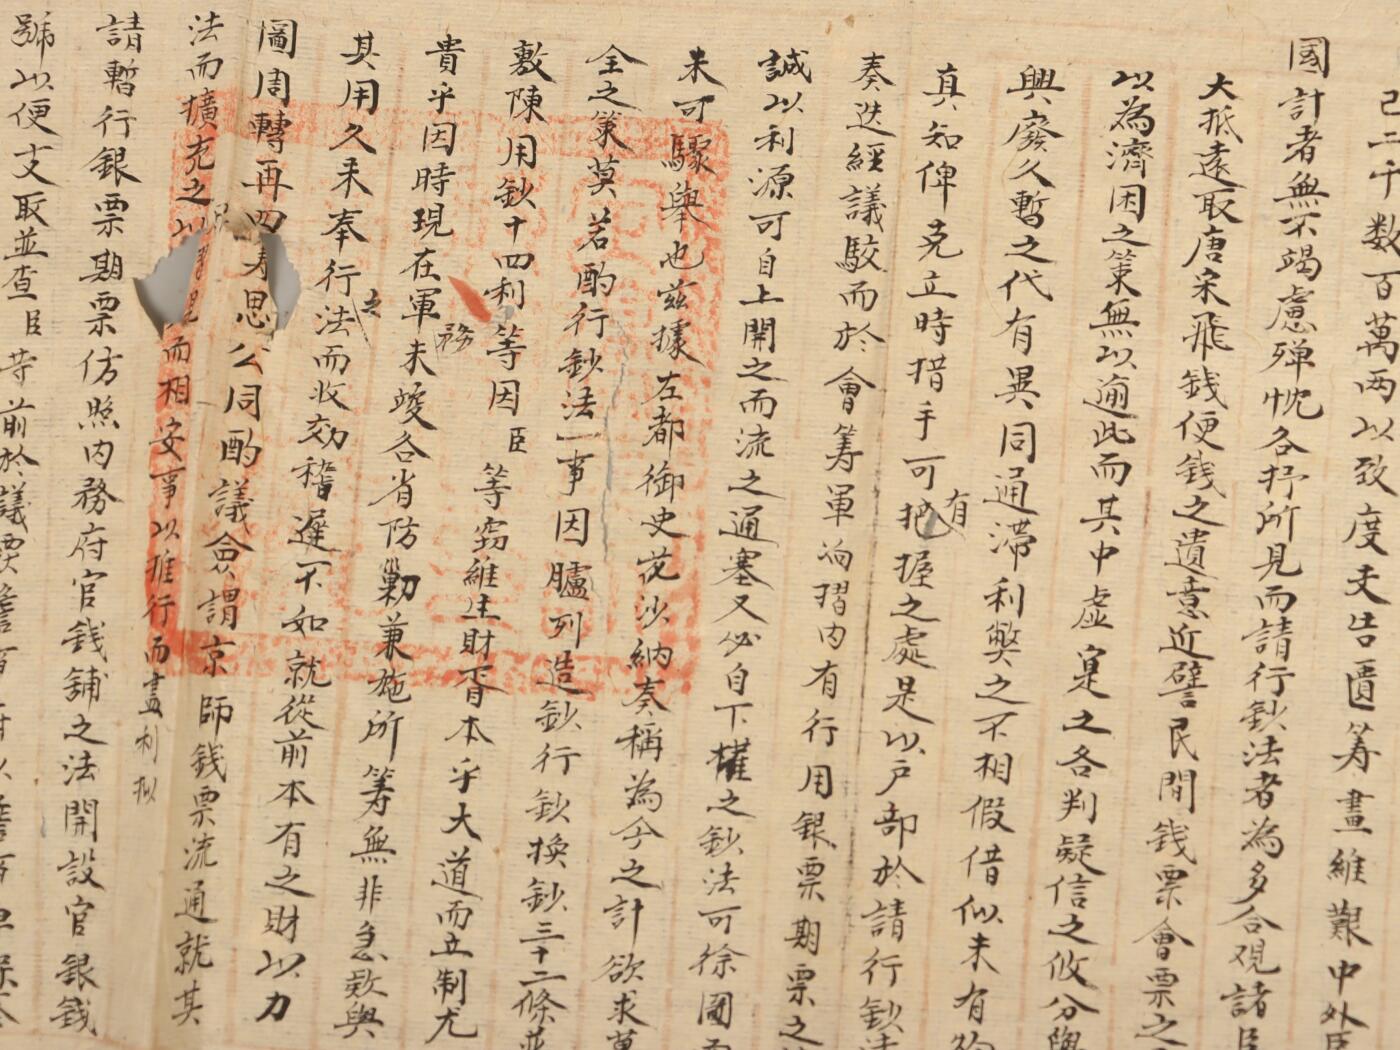 己二千数百萬两以致度支告匱筹畫維艱中外臣
國計者無不竭慮殫忱各抒所見而請行鈔法者為多合观諸臣
大抵遠取唐宋飛銭便銭之遺意近譬民間銭票會票之
以為濟困之策無以逾此而其中虚寔之各判疑信之攸分與
興廢久暫之代有異同通滯利弊之不相假借似未有
真知俾克立時措手可有把握之處是以户部於請行鈔法
奏迭經議駁而於會筹軍餉摺内有行用銀票期票之
誠以利源可自上開之而流之通塞又必自下權之鈔法可徐圖而
未可驟舉也兹據左都御史花沙納奏稱為今之計欲求萬
全之策莫若酌行鈔法一事因臚列造鈔行鈔換鈔三十二條並
敷陳用鈔十四利等因臣等窃維生財者本乎大道而立制尤
貴乎因時現在軍務未竣各省防勦兼施所筹無非急欵與
其用久未奉行之法而收効稽遲不如就從前本有之財以力
圖周轉再四筹思公同酌議僉謂京師銭票流通就其
法而擴充之以相安事以推行而盡利拟
請暫行銀票期票仿照内務府官銭舖之法開設官銀銭
號以便支取並查臣等前於議